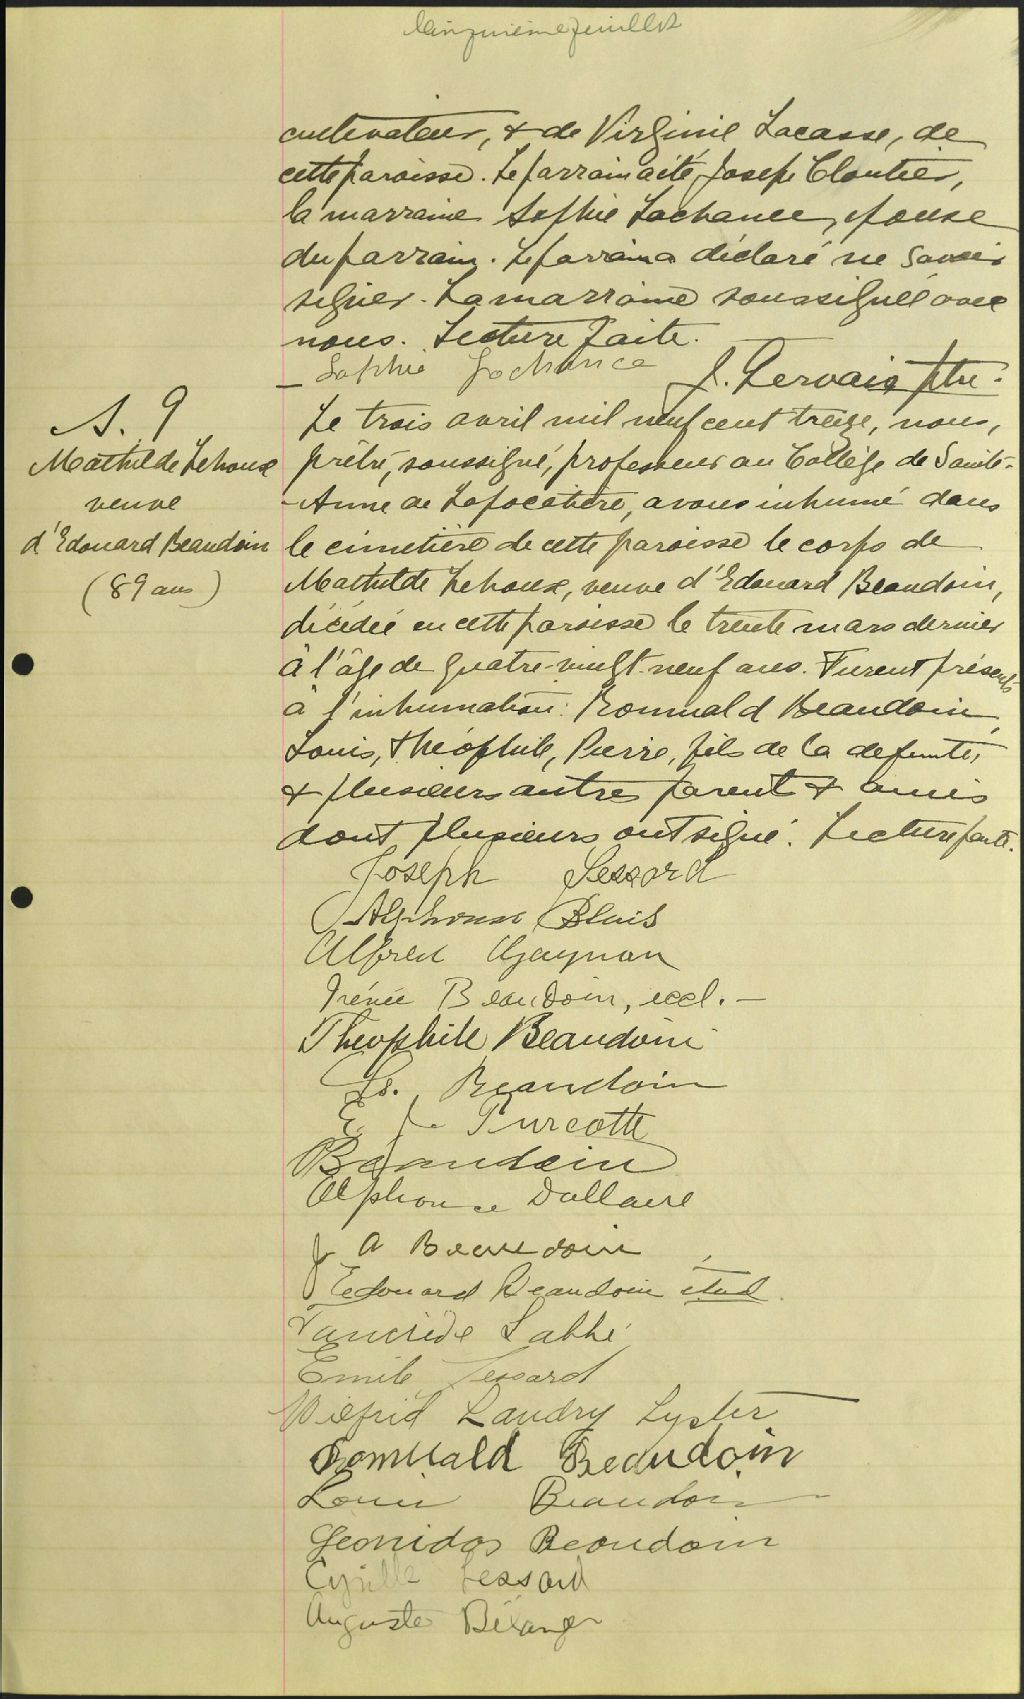 Cinquième feuillet
cultivateur, & de Virginie Lacasse, de
cette paroisse. Le parrain a été Joseph Cloutier,
la marraine Sophie Lachance, épouse
du parrain. Le parrain a déclaré ne savoir
signer. La marraine soussignée avec
nous. Lecture faite.
Sophie Lachance
J. Gervais ptre.
S. 9
Mathilde Lehoux
veuve
d'Edouard Beaudoin
(89 ans)
Le trois avril mil neuf cent treize, nous,
prêtre, soussigné, professeur au Collège de Sainte-
-Anne de Lapocatière, avons inhumé dans
le cimetière de cette paroisse le corps de
Mathilde Lehoux, veuve d'Edouard Beaudoin,
décédée en cette paroisse le trente mars dernier
à l'âge de quatre-vingt-neuf ans. Furent présents
à l'inhumation: Romuald Beaudoin,
Louis, Théophile, Pierre, fils de la defunte,
& plusieurs autres parent & amis
dont plusieurs ont signé. Lecture faite.
Joseph Lessard
Alphonse Blais
Alfred Gagnon
Irénée Beaudoin, eccl. -
Théophile Beaudoin
Ls. Beaudoin
E. J. Turcotte
Beaudoin
Alphonse Dallaire
J A Beaudoin
Edouard Beaudoin étud.
Tancrède Labbé
Emile Lessard
Wilfrid Landry Lyster
Romuald Beaudoin
Louis Beaudoin
Léonidas Beaudoin
Cyrille Lessard
Auguste Bélanger